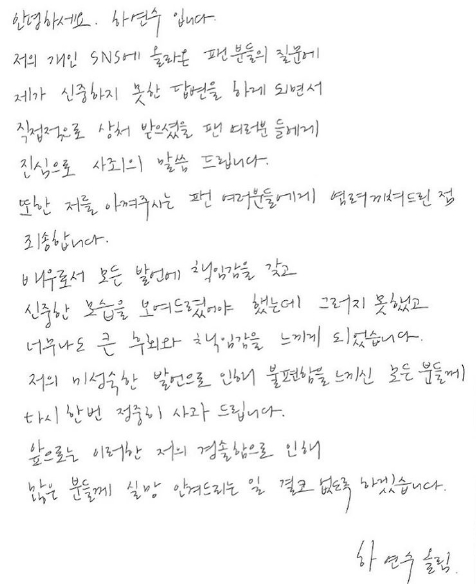 안녕하세요. 하연수 입니다.
저의 개인 SNS에 올라온 팬분들의 질문에
제가 신중하지 못한 답변을 하게 되면서
직접적으로 상처 받으셨을 팬 여러분 들에게
진심으로 사죄의 말씀 드립니다.
또한 저를 아껴주시는 팬 여러분들에게 염려끼쳐드린 점
죄송합니다.
배우로서 모든 발언에 책임감을 갖고
신중한 모습을 보여드렸어야 했는데 그러지 못했고
너무나도 큰 후회와 책임감을 느끼게 되었습니다.
저의 미성숙한 발언으로 인해 불편함을 느끼신 모든 분들께
다시 한번 정중히 사과 드립니다.
앞으로는 이러한 저의 경솔함으로 인해
많은 분들께 실망 안겨드리는 일 결코 없도록 하겠습니다.
하연수 올림.